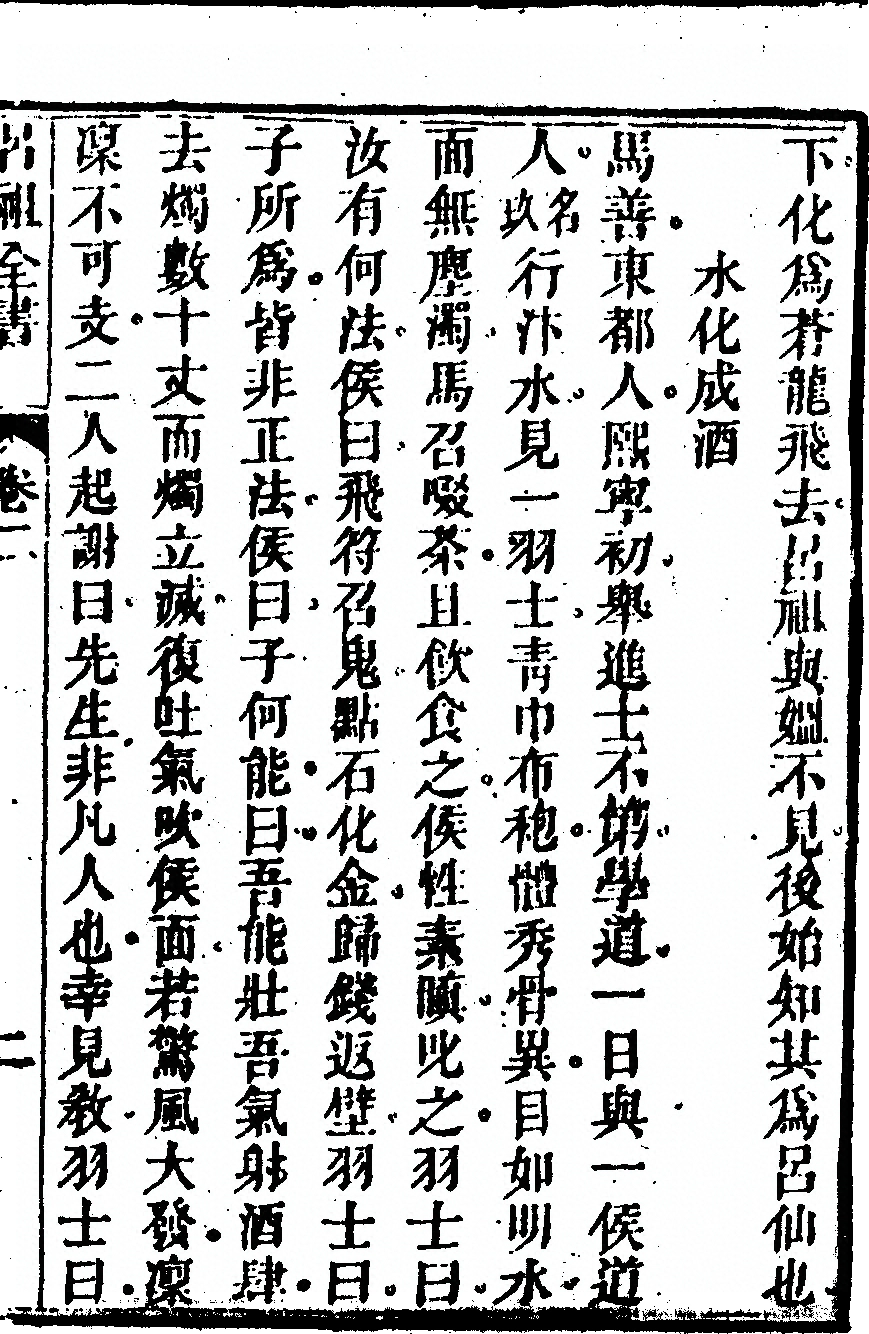 下化為蒼龍飛去呂祖與媼不見後始知其為呂仙也
水化成酒
馬善東都人熙寧初舉進士不第學道一日與一侯道
人名玖行汴水見一羽士青巾布袍體秀骨異目如明水
面無塵濁馬召啜茶且飲食之侯性素瞋叱之羽士曰
汝有何法侯曰飛符召鬼點石化金歸錢返璧羽士曰
子所為皆非正法侯曰子何能曰吾能壯吾氣射酒肆
去燭數十丈而燭立滅復吐氣吹侯面若驚風大發凜
凜不可支二人起謝曰先生非凡人也幸見教羽士曰
呂祖全書
卷二
二